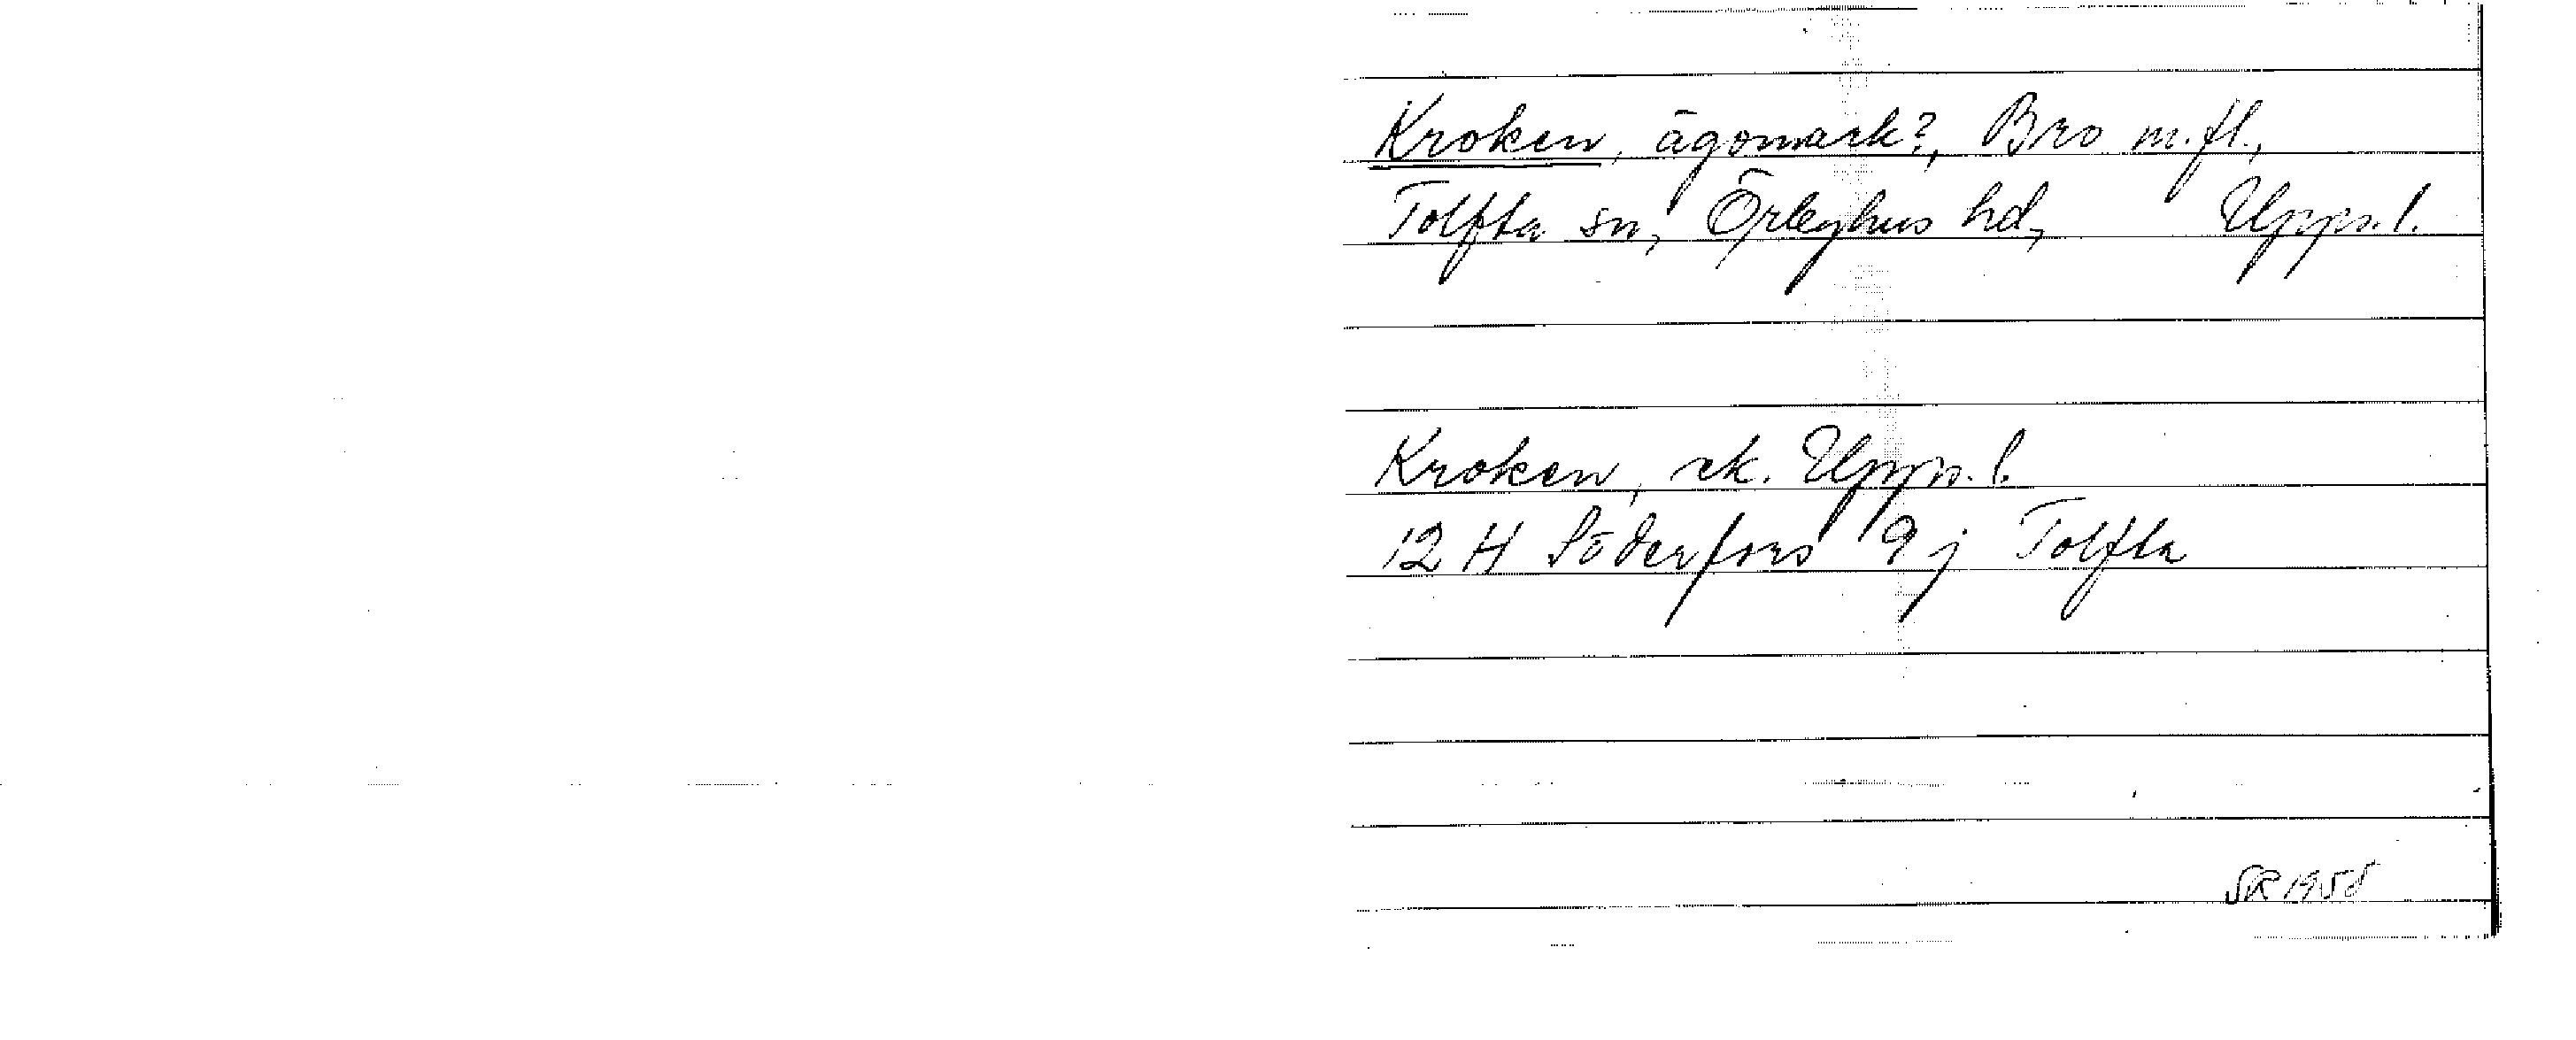 Kroken, ägomark?, Bro m.fl.,
Tolfta sn, Örbyhus hd, Upps. l.
Kroken, ek. Upps. l.
12 H Söderfors 9 j Tolfta
SR 1958